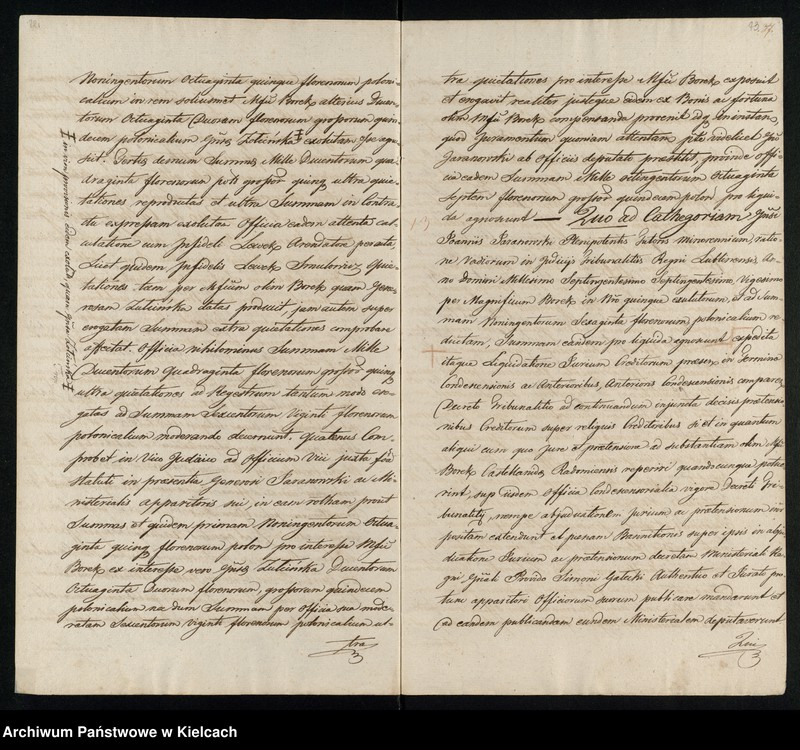 Noningentorum Octuaginta quinque florenorum poloni-
calium in rem solius met Mfci Borek alterius Ducen-
torum Octuaginta Duorum florenorum grosorum quin-
decem polonicalium Gnsa exolutam
sit. Tertis demum Summa Mille Ducentorum qua-
draginta florenorum poli grosor quinq ultra quie-
tationes reproductas et ultra Summam in Contra
ctu expressam exolutas Officia eadem attenta cal-
culatione cum Infideli Lewek Arendatore peracta
Licet quidem Infidelis Lewek Smulowicz Quie-
tationes tam per Mfcum olim Borek quam Gene-
rosam datas produxit, jam autem super
erogatam Summam extra quietationes comprobare
affectat. Officia nihilominus Summam Mille
Ducentorum Quadraginta florenorum grosor quinq
ultra quietationes ac Regestrum tantum modo ero-
gatas ad Summam Sexcentorum Viginti florenorum
polonicalium moderando decernunt. Quatenus Com-
probet in Vico Judaico ad Officium Vici juxta
Statuti in praesentia Generosi Taranowski ac Mi-
nisterialis apparitoris sui, in eam rotham prout
Summas et quidem primam Noningentorum Octua-
ginta quinq florenorum polon pro interesse Mfci
Borek ex interesse vero Gnsa Ducentorum
Octuaginta Duorum florenorum, grosorum quindecem
polonicalium na dum Summam per officia sua mode-
ratam Sexcentorum Viginti florenorum polonicalium ul-
tra
tra quietationes pro interesse Mfci Borek exposuit
et erogavit realiter justeque eidem ex Bonis ac fortuna
olim Mfci Borek compensanda provenit
quod Juramentum quoniam attentam videlicet Gsi
Taranowski ab Officio deputati praestitit, proinde Offi-
cia eadem Summam Mille Octingentorum Octuaginta
Septem florenorum grosor quindecem polon pro liqui-
da agnoscunt — Quo ad Cathegoriam Gnsi
Joannis Taranowski Plenipotentis Tutoris minorennium, ratio
ne Vadiorum in Judicijs Tribunalitijs Regni Lublinensis An-
no Domini Millesimo Septingentesimo Septingentesimo, Vigesimo
per Magnificum Borek in Vim quinque exolutorum, et ad Sum-
mam Noningentorum Sexaginta florenorum polonicalium re
dictam, Summam eandem pro liquida agnoscunt expedita
itaque Liquidatione Jurium Creditorum praesen in Termino
Condescensionis ac Anterioribus, Anterioris Condescensionis comparen
Decreto Tribunalitio ad continuandum injuncta decisis praetensio-
nibus Creditorum super reliquis Creditoribus si et in quantum
aliqui cum quo jure et praetensione ad substantiam olim Mfci
Borek Castellanidae Radomiensis reperiri quandocunque potue-
rint, sup iisdem Officia Condescensorialia vigore Decreti Tri-
bunalitij, nempe abjudicationem Jurium ac praetensionum im-
positam extendunt et penam Bannitionis super ipsis in abju-
dicatione Jurium ac praetensionum decretam Ministeriali Re-
gni Gnali Provido Simoni Gatcki Authentico et Jurato pro
tunc apparitori Officiorum suorum publicare mandarunt et
ad eandem publicandam eundem Ministerialem deputaverunt
Qui
Archiwum Państwowe w Kielcach